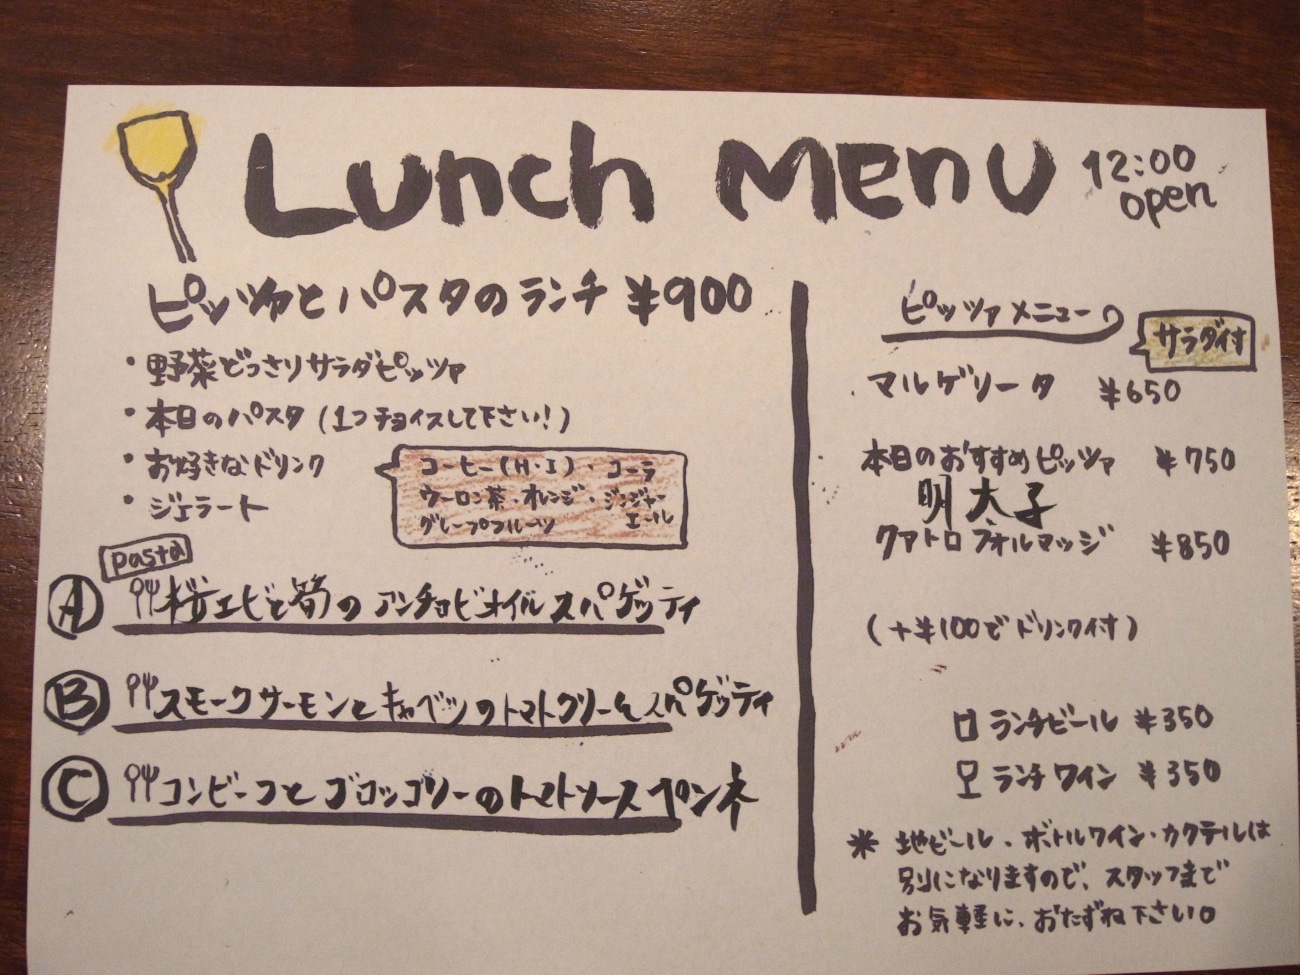 Lunch MENU
12:00
open
ピッツァとパスタのランチ ¥900
・野菜どっさりサラダピッツァ
・本日のパスタ (1つチョイスして下さい!)
・お好きなドリンク
・ジェラート
コーヒー(H・I)・コーラ
ウーロン茶・オレンジ・ジンジャーエール
グレープフルーツ
pasta
A 桜エビと筍のアンチョビオイルスパゲッティ
B スモークサーモンとキャベツのトマトクリームスパゲッティ
C コンビーフとブロッコリーのトマトソースペンネ
ピッツァメニュー
サラダ付
マルゲリータ ¥650
本日のおすすめピッツァ ¥750
明太子
クアトロフォルマッジ ¥850
(+¥100でドリンク付)
ランチビール ¥350
ランチワイン ¥350
* 地ビール・ボトルワイン・カクテルは
別になりますので、スタッフまで
お気軽に、おたずね下さい。